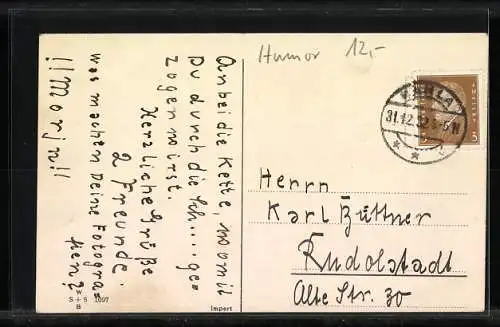 Humor 12,-
Anbei die Kette, womit
Du durch die Sch....ge=
zogen wirst.
Herzliche Grüße
2 Freunde.
was machten Deine Fotogra=
fien?
!! Morjn!!
W
S+S 1097
B
Import
KAHLA
31.12.32.5-6N
Herrn
Karl Büttner
Rudolstadt
Alte Str. 30